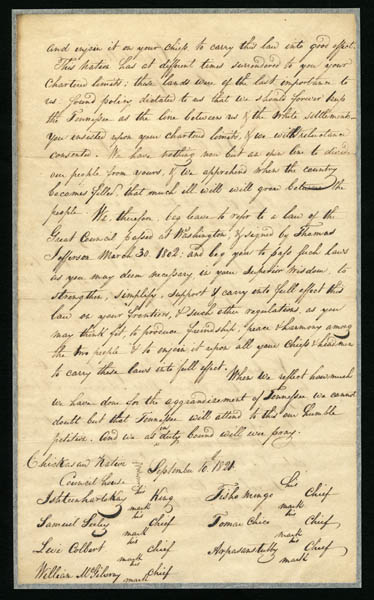 and enjoin it on your Chiefs to carry this law into good effect.
This Nation has at different times surrendered to you your
Chartered limits; these lands were of the last importance to
us. Sound policy dictated to us that we should forever keep
the Tennessee as the line between us & the White settlement
You insisted upon your chartered limits, & we with reluctance
consented. We have nothing now but an open line to divide
our people from yours, & we apprehend when the country
becomes filled, that much ill will will grow between the
people. We, therefore, beg leave to refer to a law of the
Great Council passed at Washington & signed by Thomas
Jefferson March 30. 1802: and beg you to pass such laws
as you may deem necessary in your superior wisdom, to
strengthen, simplify, support & carry into full effect this
law on your frontiers, & such other regulations, as you
may think fit, to produce friendship, peace & harmony among
the two people & to enjoin it upon all your Chiefs & headmen
to carry these laws into full effect.
When we reflect how much
we have done for the aggrandizement of Tennessee we cannot
doubt but that Tennessee will attend to this our humble
petition. And we as in duty bound will ever pray.
Chickasaw Nation
Council house September 6th 1821.
his his
King mark Tisho Mingo mark Chief
his his
Samuel Seeley mark Chief Tomar Chico mark Chief
his his
Levi Colbert mark Chief mark Chief
his
William McGilvery mark Chief